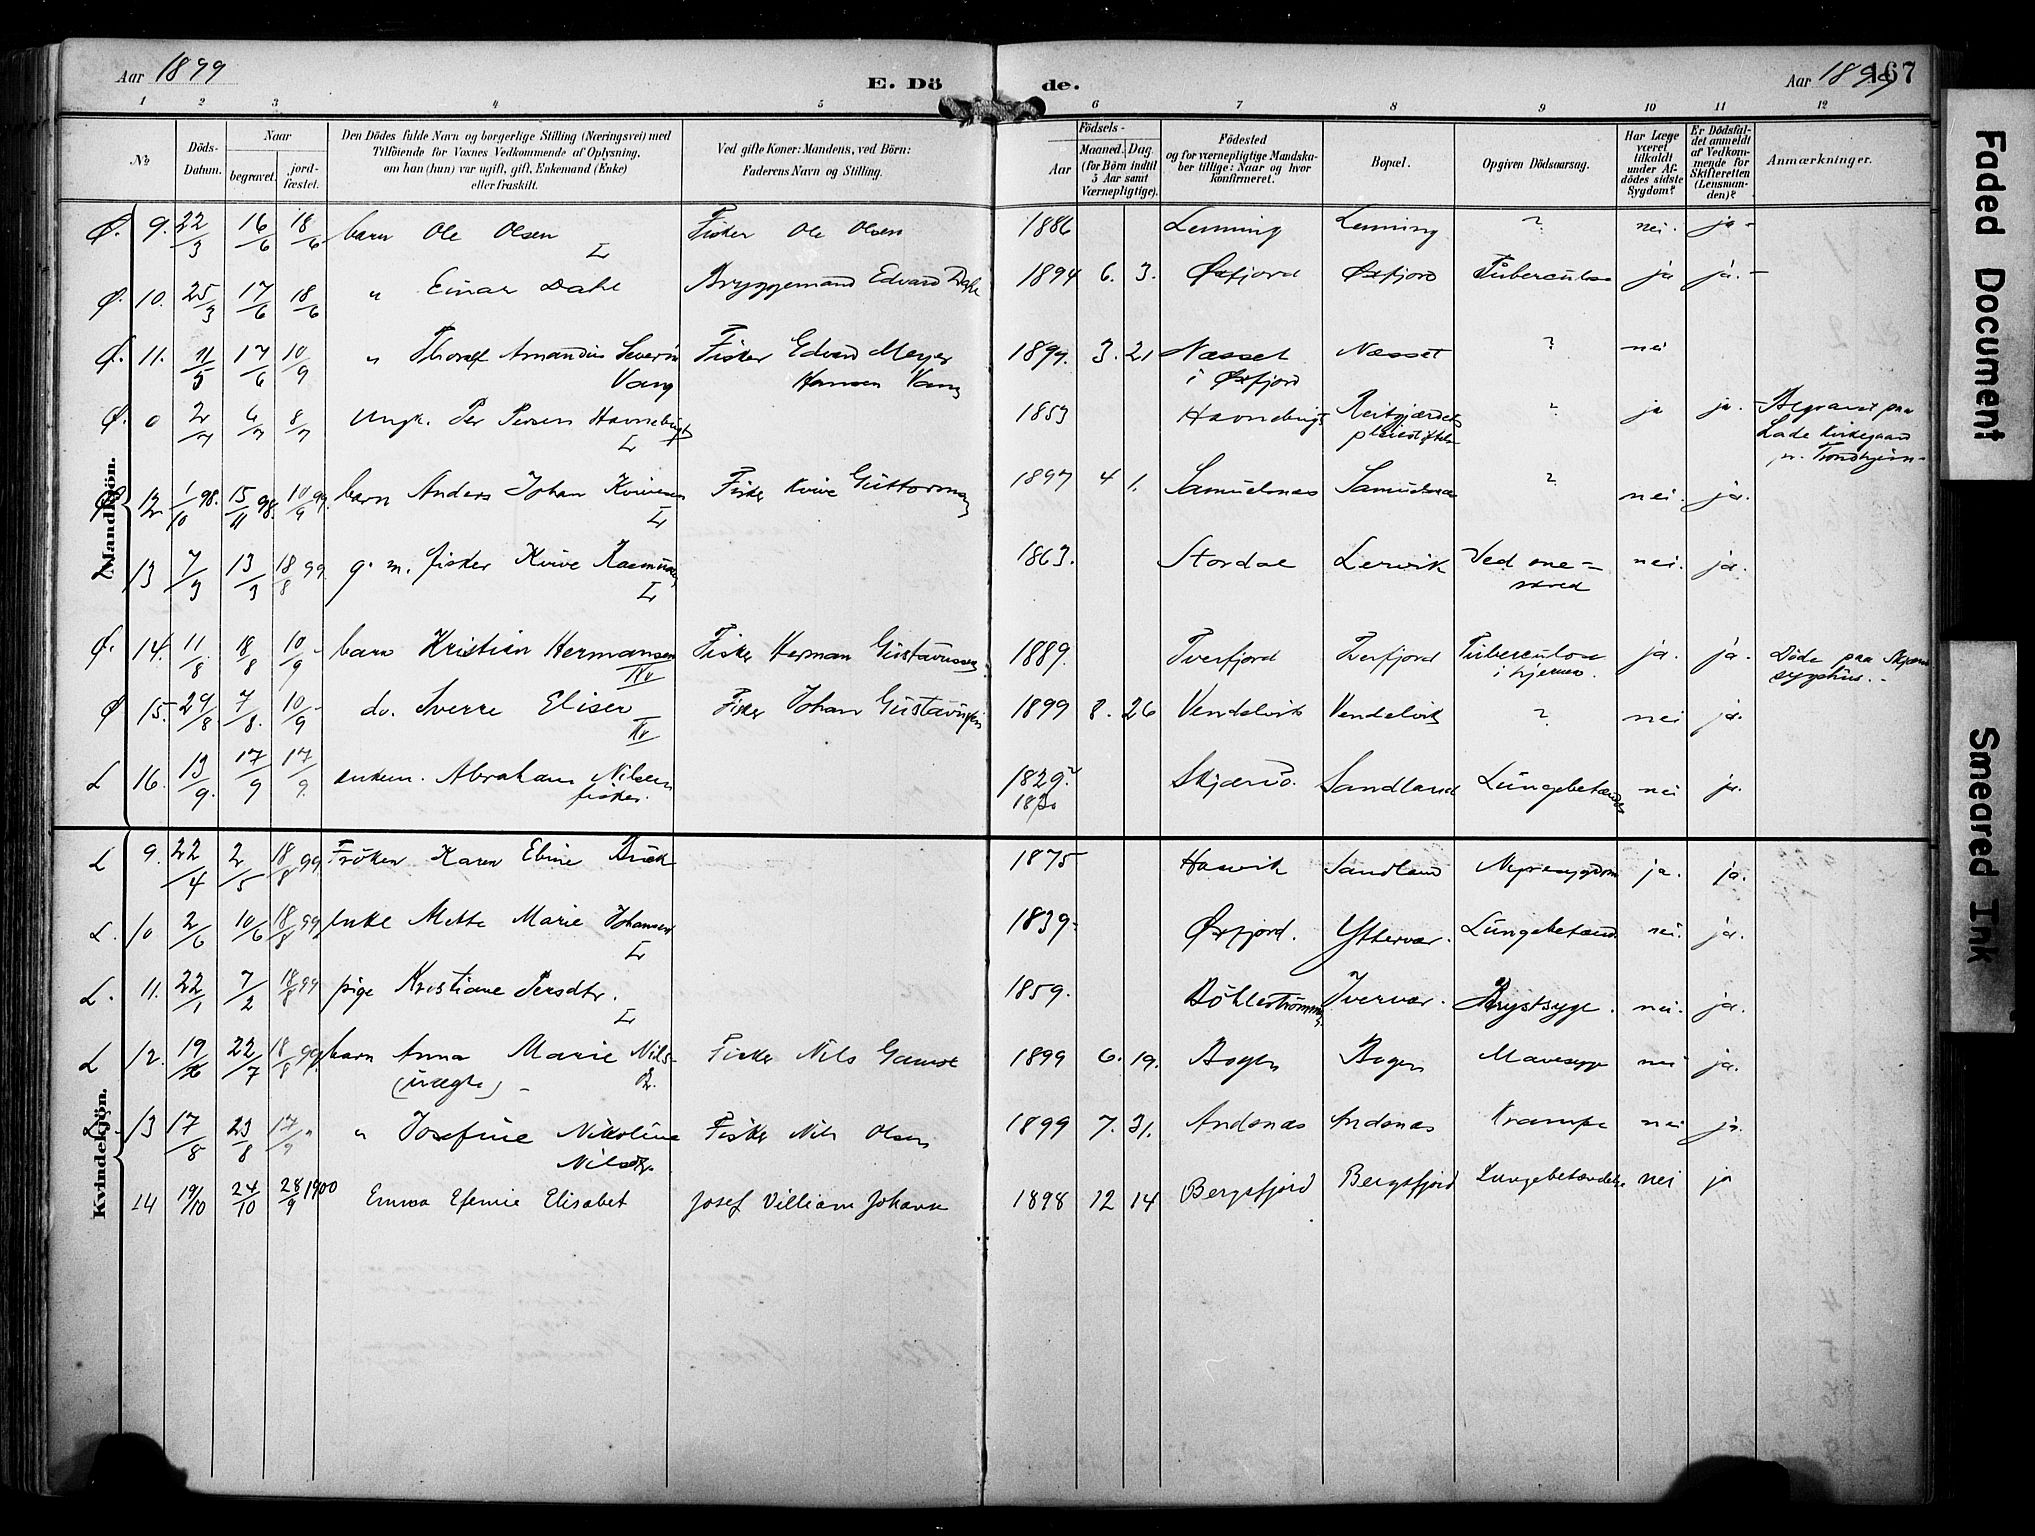 Aar 1899
E. Dö
de.
Aar 1899
167
1 2 3 4 5 6 7 8 9 10 11 12
No
Döds-Datum.
Naar
begravet.
jord-fæstet.
Den Dödes fulde Navn og borgerlige Stilling (Næringsvei) med
Tilföiende for Voxnes Vedkommende af Oplysning,
om han (hun) var ugift, gift, Enkemand (Enke)
eller fraskilt.
Ved gifte Koner: Mandens, ved Börn:
Faderens Navn og Stilling.
Födsels-
Aar
Maaned. Dag
(for Börn indtil
5 Aar samt
Værnepligtige).
Födested
og for værnepligtige Mandska-
ber tillige: Naar og hvor
konfirmeret.
Bopæl.
Opgiven Dödsaarsag.
Har Læge
været
tilkaldt
under Af-
dödes sidste
Sygdom?
Er Dödsfal-
det anmeldt
af Vedkom-
mende for
Skifteretten
(Lensman-
den)?
Anmærkninger.
Mandkjön.
Ø. 9. 22/3 16/6 18/6 barn Ole Olsen Fisker Ole Olsen 1886 Lenning Lenning ? nei. ja-
Ø. 10. 25/3 17/6 18/6 " Einar Dahl Bryggemand Edvard Dahl 1894 6. 3. Øxfjord Øxfjord Tuberculose ja ja.-
Ø. 11. 11/5 17/6 10/9 " Thoralf Amandus Severin Fisker Edvard Meyer 1899. 3. 21 Næsset Næsset ? nei
Vang Hansen Vang i Øxfjord
Ø. 0 2/7 6/7 8/7 Ungk. Per Persen Havnebugt 1853 Havnebugt Reitgjærdets ? ja ja- Begravet paa
pleiestiftelse Lade Kirkegaard
pr. Trondhjem-
Ø 12. 1/10 98. 15/11 98. 10/9 99. barn Anders Johan Kvivesen Fisker Kvive Guttormsen 1897 4 1. Samuelsnes Samuelsnes ? nei. ja.
13 7/3 13/3 18/8 99 g. m. fisker Kvive Rasmussen 1863. Stordal Lervik Ved sne= nei. ja.
skred
Ø. 14. 11/8 18/8 10/9 barn Kristian Hermansen Fisker Herman Gustavussen 1889. Tverfjord Tverfjord Tuberculose ja. ja. Döde paa Skjærvö
i hjernen. sygehus.-
Ø 15. 29/8 7/8. 10/9 do. Sverre Eliser Fisker Johan Gustavussen 1899 8. 26 Vendelvik Vendelvik ? nei ja.
L 16. 13/9. 17/9 17/9. enkem. Abraham Nilsen 1829? Skjærvö. Sandland Lungebetændelse nei ja.
fisker. 1830
Kvindekjön.
L 9. 22/4 2/5 18/8 99 Fröken Karen Eline Buck 1875 Hasvik Sandland Nyresygdom ja. ja.
L. 10 2/6 10/6 18/8 99 enke Mette Marie Johansen 1839- Øxfjord. Yttervær. Lungebetænd. nei. ja.
L. 11. 22/1 7/2 18/8 99 pige Kristiane Persdtr. 1859. Böhleströmmen Ivervær. Brystsyge. nei. ja.
L 12. 19/6 22/7 18/8 99 barn Anna Marie Nils- Fisker Nils Gamst 1899 6. 19. Bogen Bogen Mavesyge nei ja.
(uægte) - dtr.
L. 13 17/8 23/8 17/9 " " Josefine Nikoline Fisker Nils Olsen 1899 7. 31. Andsnæs Andsnæs Krampe nei ja.
Nilsdtr.
14 19/10 24/10 28/9 1900 Emma Efenie Elisabet Josef Villiam Johansen 1898 12 14 Bergsfjord Bergsfjord Lungebetændelse nei ja
Faded Document
Smeared Ink